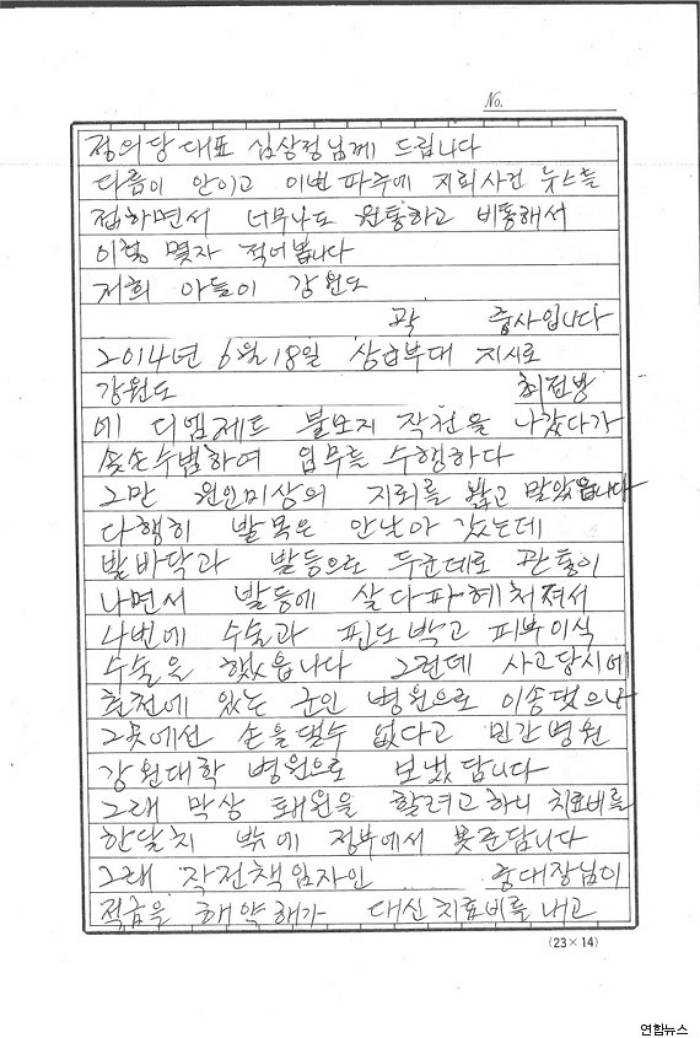 No.
정의당 대표 심상정님께 드립니다
다름이 안이고 이번 파주에 지뢰사건 뉴스를
접하면서 너무나도 원통하고 비통해서
이렇 몇자 적어봅니다
저희 아들이 강원도
곽 중사입니다
2014년 6월 18일 상급부대 지시로
강원도 최전방
에 디엠제트 불모지 작전을 나갔다가
솔손수범하여 임무를 수행하다
그만 원인미상의 지뢰를 밟고 말았읍니다
다행히 발목은 안날아 갔는데
발바닥과 발등으로 두군데로 관통이
나면서 발등에 살 다파헤쳐져서
4번에 수술과 핀도박고 피부이식
수술을 했읍니다 그런데 사고당시에
춘천에 있는 군인 병원으로 이송됐으나
그곳에선 손을댈수 없다고 민간병원
강원대학 병원으로 보냈답니다
그래 막상 퇘원을 할려고하니 치료비를
한달치 밖에 정부에서 못준답니다
그래 작전책임자인 중대장님이
적금을 해약해가 대신 치료비를 내고
(23×14)
연합뉴스